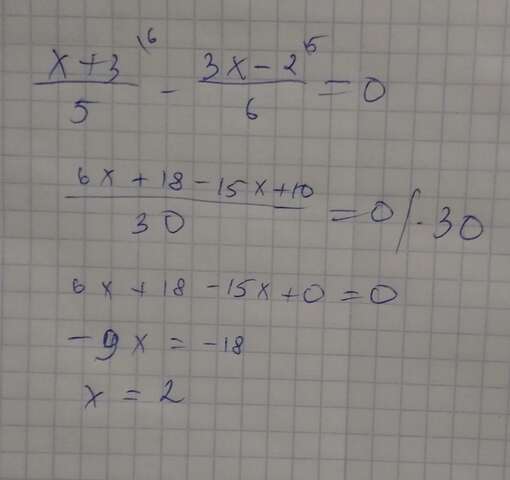 (x+3)/5 \6 - (3x-2)/6 \5 = 0
(6x+18-15x+10)/30 = 0 /·30
6x+18-15x+0=0
-9x=-18
x=2